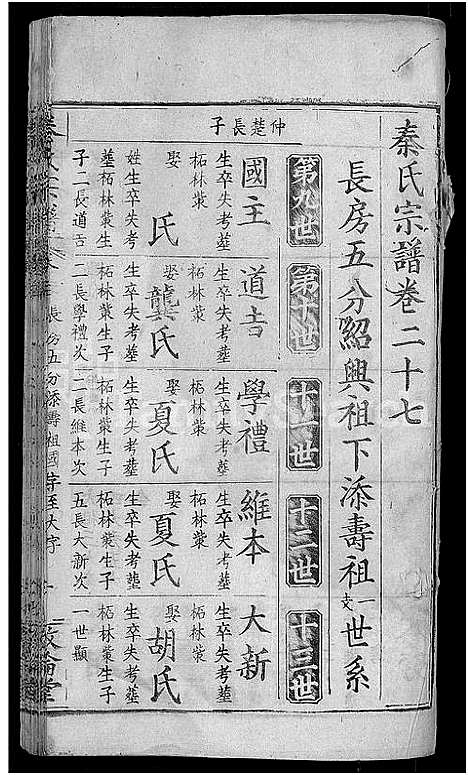 秦氏宗譜卷二十七
長房五分紹興祖下添壽祖一支世系
第九世
第十世
十一世
十二世
十三世
仲楚長子
國主
生卒失考葬
柘林蒙
娶
氏
姓生卒失考
葬柘林蒙生
子二長道吉
道吉
生卒失考葬
柘林蒙
娶龔氏
生卒失考葬
柘林蒙生子
二長學禮次
學禮
生卒失考葬
柘林蒙
娶夏氏
生卒失考葬
柘林蒙生子
二長維本次
維本
生卒失考葬
柘林蒙
娶夏氏
生卒失考葬
柘林蒙生子
五長大新次
大新
生卒失考葬
柘林蒙
娶胡氏
生卒失考葬
柘林蒙生子
一世顯
長房五分添壽祖國